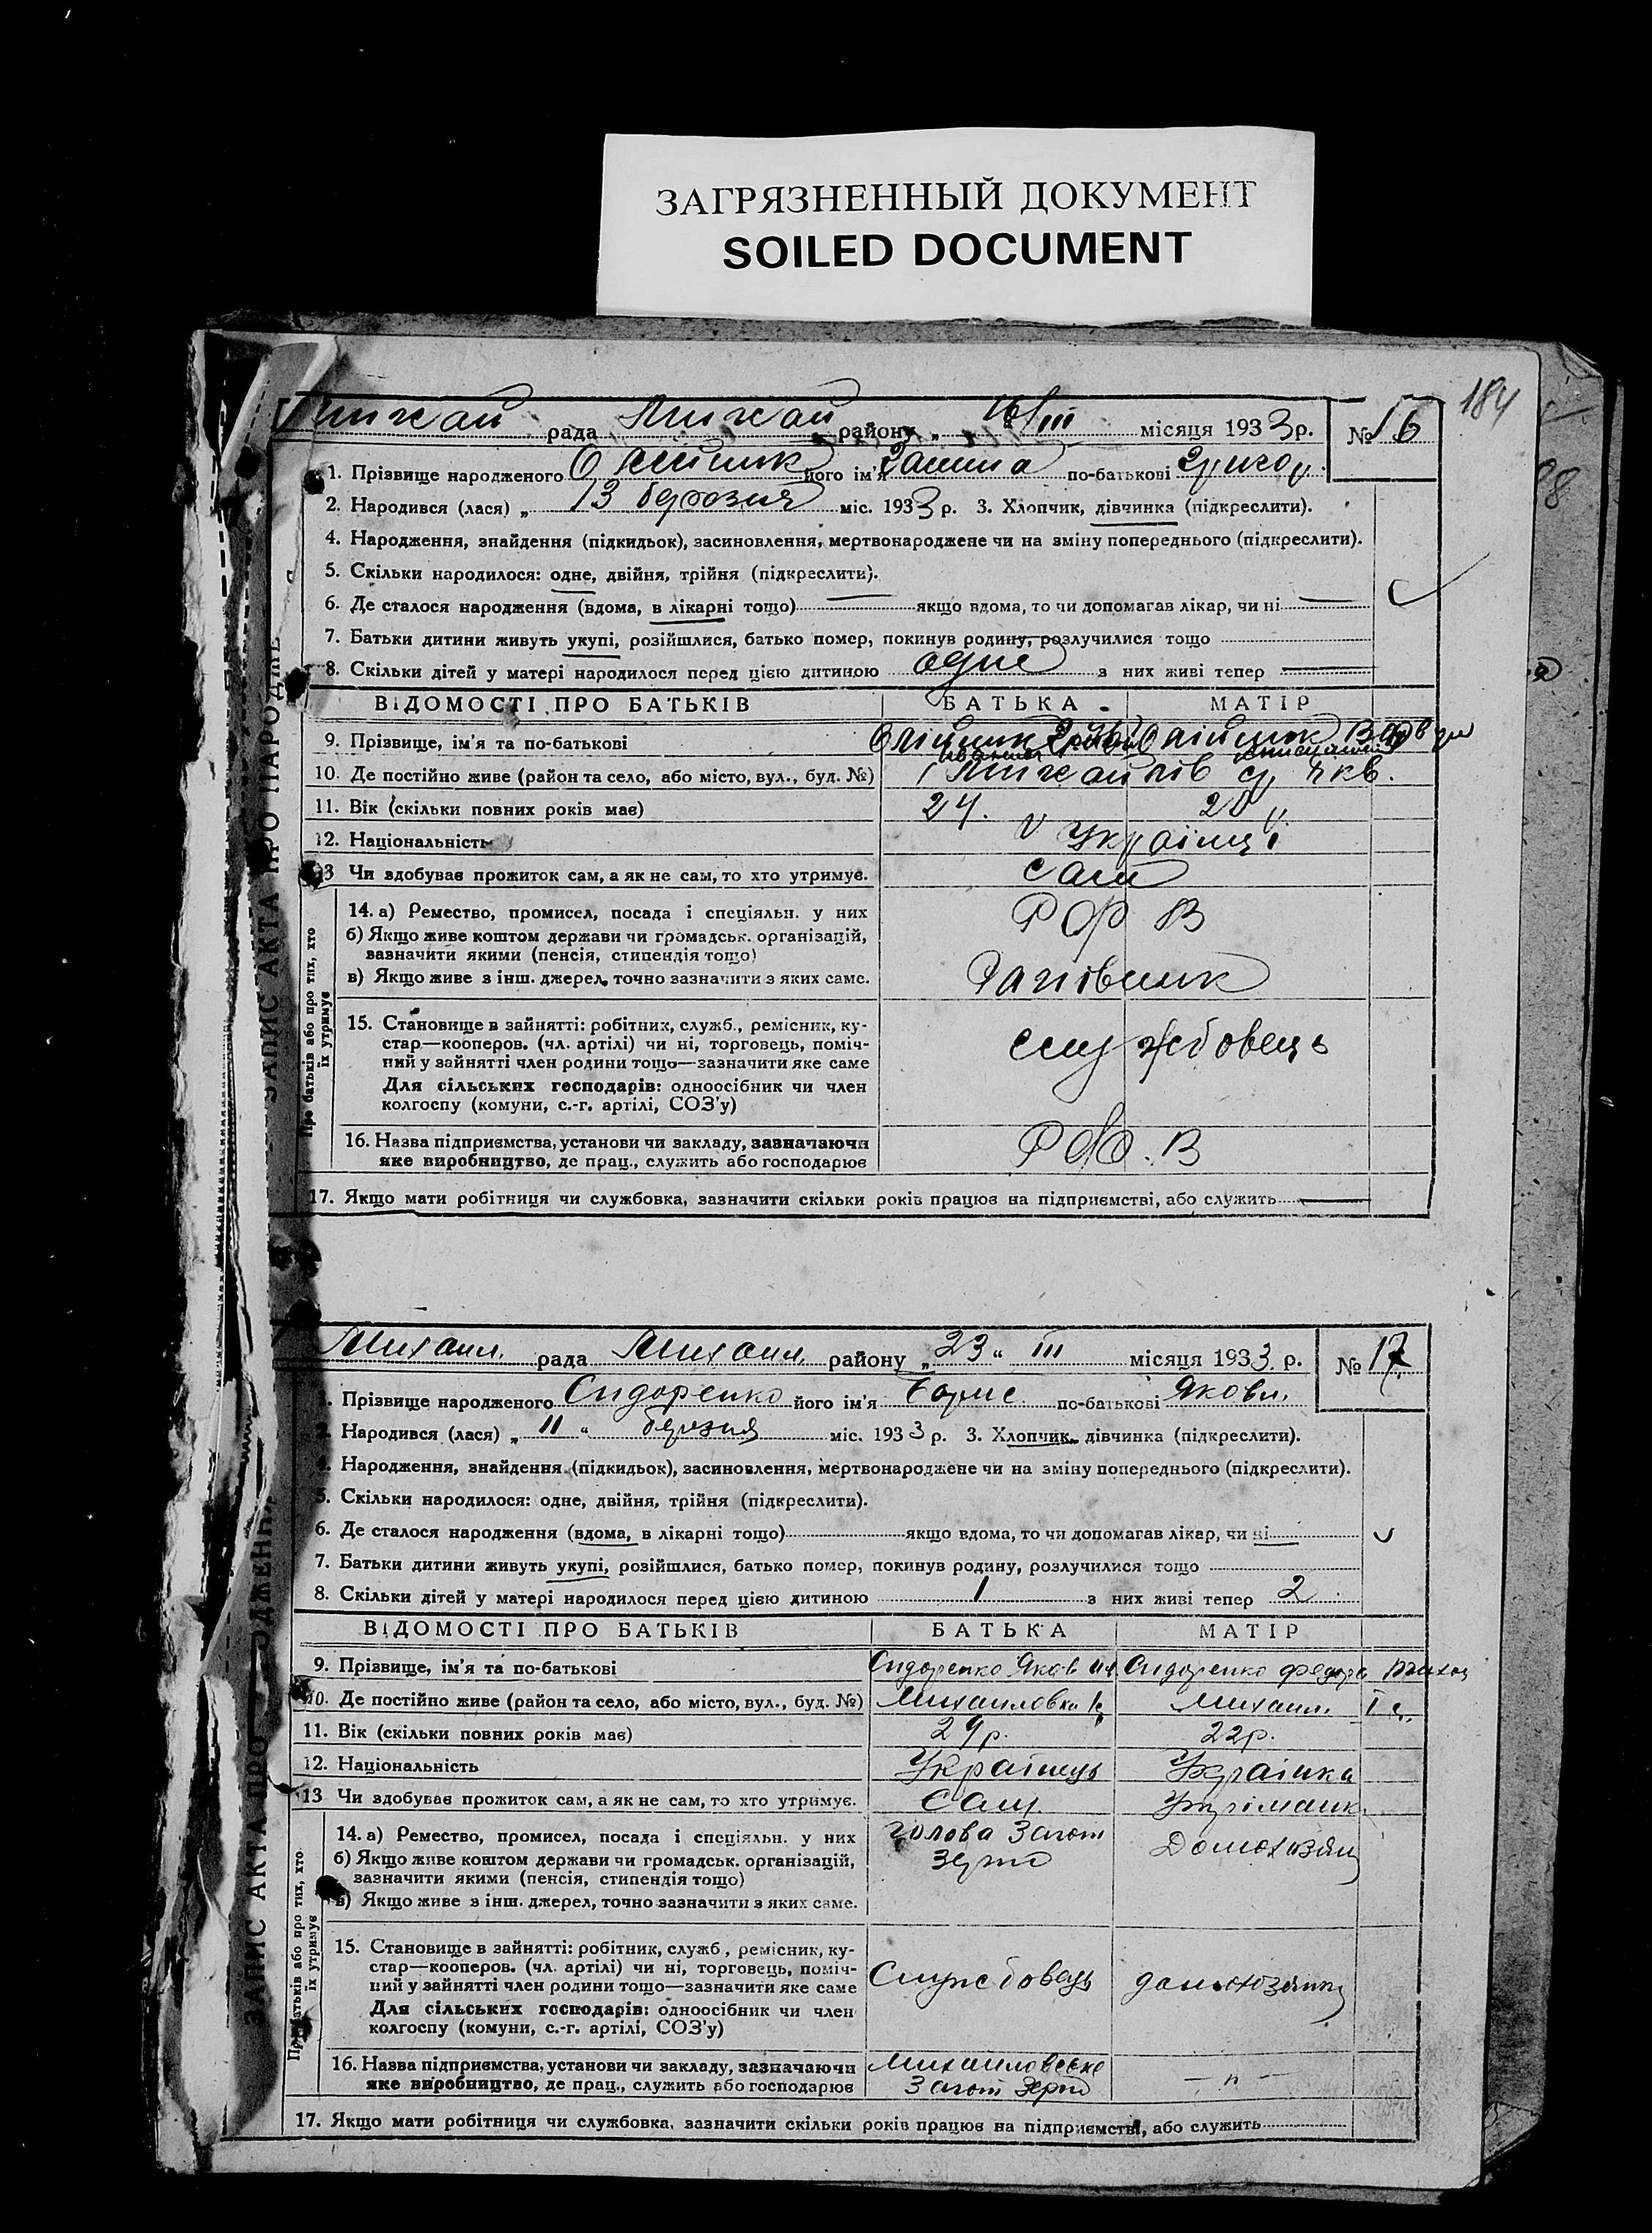 ЗАГРЯЗНЕННЫЙ ДОКУМЕНТ
SOILED DOCUMENT
184
рада району 16/III місяця 1933 р. № 16
1. Прізвище народженого Олійник його ім'я по-батькові Григор.
2. Народився (лася) „ 13 березня міс. 1933 р. 3. Хлопчик, дівчинка (підкреслити).
4. Народження, знайдення (підкидьок), засиновлення, мертвонароджене чи на зміну попереднього (підкреслити).
5. Скільки народилося: одне, двійня, трійня (підкреслити).
6. Де сталося народження (вдома, в лікарні тощо) якщо вдома, то чи допомагав лікар, чи ні
7. Батьки дитини живуть укупі, розійшлися, батько помер, покинув родину, розлучилися тощо
8. Скільки дітей у матері народилося перед цією дитиною одне з них живі тепер
ВІДОМОСТІ ПРО БАТЬКІВ БАТЬКА МАТІР
9. Прізвище, ім'я та по-батькові Олійник Олійник
10. Де постійно живе (район та село, або місто, вул., буд. №)
11. Вік (скільки повних років має) 24. 20
12. Національність Українці
13 Чи здобуває прожиток сам, а як не сам, то хто утримує. сам
14. а) Ремество, промисел, посада і спеціяльн. у них
б) Якщо живе коштом держави чи громадськ. організацій,
зазначити якими (пенсія, стипендія тощо)
в) Якщо живе з інш. джерел, точно зазначити з яких саме.
15. Становище в зайнятті: робітник, служб., ремісник, ку-
стар—кооперов. (чл. артілі) чи ні, торговець, поміч-
ний у зайнятті член родини тощо—зазначити яке саме
службовець
Для сільських господарів: одноосібник чи член
колгоспу (комуни, с.-г. артілі, СОЗ'у)
16. Назва підприємства, установи чи закладу, зазначаючи
яке виробництво, де прац., служить або господарює
17. Якщо мати робітниця чи службовка, зазначити скільки років працює на підприємстві, або служить
Михаил. рада Михаил. району „ 23 “ III місяця 1933 р. № 17
1. Прізвище народженого Сидоренко його ім'я Борис по-батькові Яковл.
2. Народився (лася) „ 11 “ березня міс. 1933 р. 3. Хлопчик, дівчинка (підкреслити).
4. Народження, знайдення (підкидьок), засиновлення, мертвонароджене чи на зміну попереднього (підкреслити).
5. Скільки народилося: одне, двійня, трійня (підкреслити).
6. Де сталося народження (вдома, в лікарні тощо) якщо вдома, то чи допомагав лікар, чи ні
7. Батьки дитини живуть укупі, розійшлися, батько помер, покинув родину, розлучилися тощо
8. Скільки дітей у матері народилося перед цією дитиною 1 з них живі тепер 2
ВІДОМОСТІ ПРО БАТЬКІВ БАТЬКА МАТІР
9. Прізвище, ім'я та по-батькові Сидоренко Яков Сидоренко Федора
10. Де постійно живе (район та село, або місто, вул., буд. №) Михаиловка Михаил.
11. Вік (скільки повних років має) 29 р. 22 р.
12. Національність Українець Українка
13 Чи здобуває прожиток сам, а як не сам, то хто утримує. Сам.
14. а) Ремество, промисел, посада і спеціяльн. у них голова Загот
зерно
б) Якщо живе коштом держави чи громадськ. організацій,
зазначити якими (пенсія, стипендія тощо)
в) Якщо живе з інш. джерел, точно зазначити з яких саме.
15. Становище в зайнятті: робітник, служб., ремісник, ку-
стар—кооперов. (чл. артілі) чи ні, торговець, поміч-
ний у зайнятті член родини тощо—зазначити яке саме
Службовець
Для сільських господарів: одноосібник чи член
колгоспу (комуни, с.-г. артілі, СОЗ'у)
16. Назва підприємства, установи чи закладу, зазначаючи Михаиловське
яке виробництво, де прац., служить або господарює Загот Зерно
17. Якщо мати робітниця чи службовка, зазначити скільки років працює на підприємстві, або служить
Про батьків або про тих, хто їх утримує